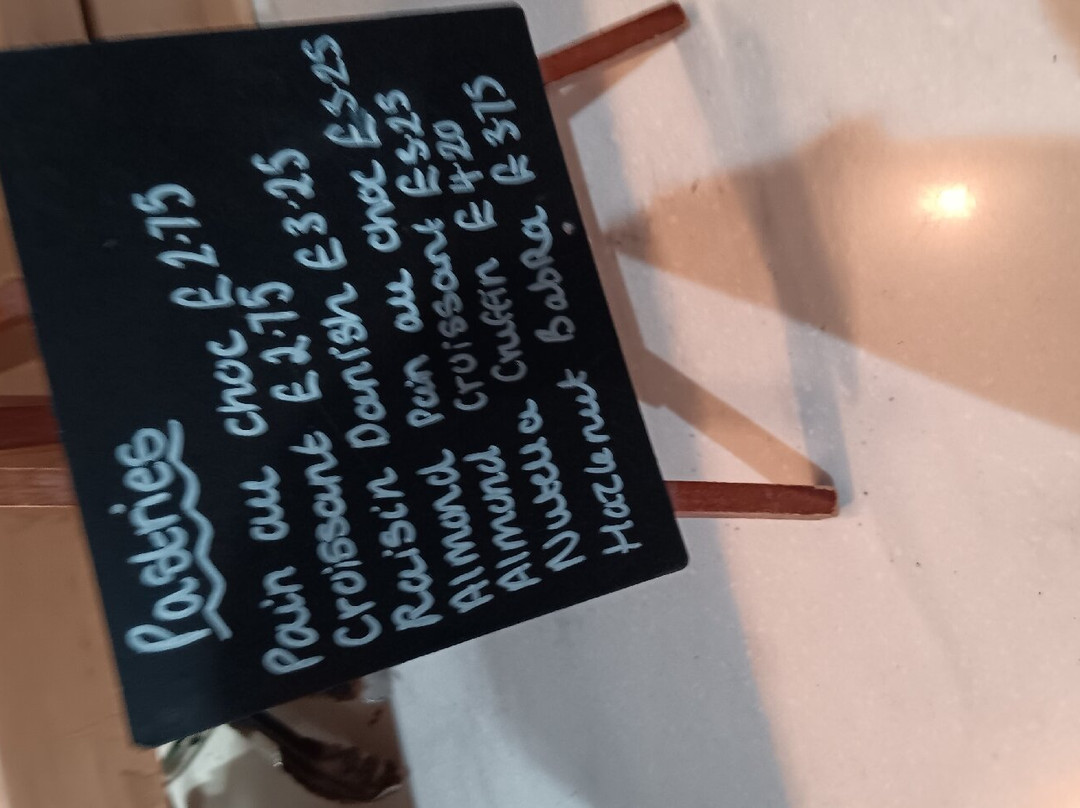 Pastries
Pain au choc £2.75
Croissant £2.75
Raisin Danish £3.25
Almond pain au choc £3.25
Almond croissant £3.25
Nutella Cruffin £4.20
Hazelnut Babka £3.75